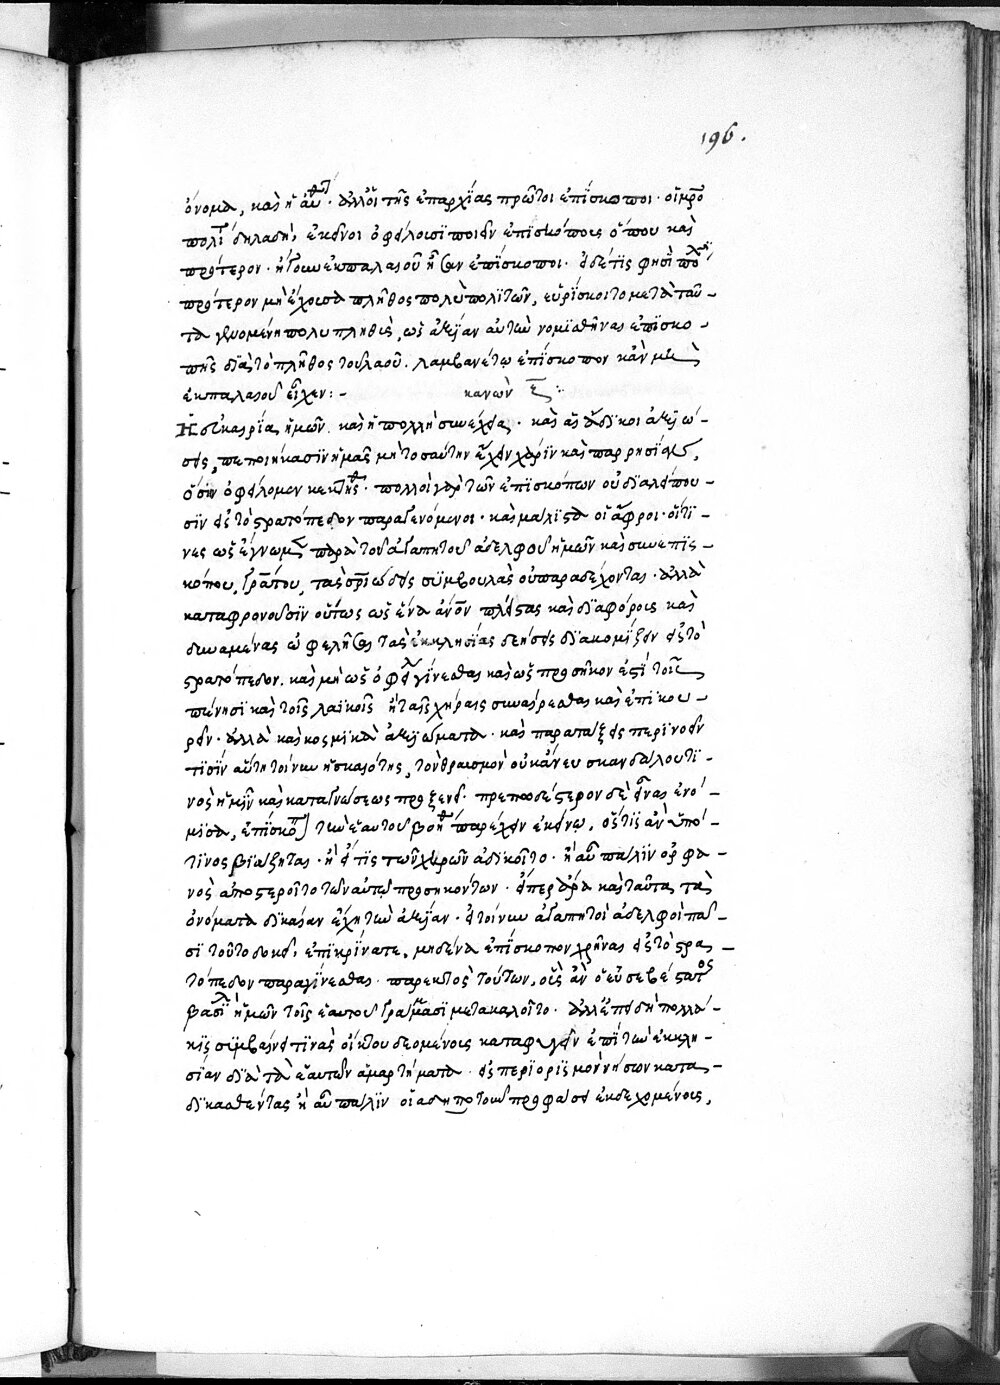 196.
ὄνομα, καὶ ἡ αὐθ . ἀλλ' οἱ τῆς ἐπαρχίας πρῶτοι ἐπίσκοποι · οἱ μρο
πολῖ δηλαδὴ, ἐκεῖνοι ὀφείλουσι ποιεῖν ἐπισκόπους ὅπου καὶ
πρότερον · ἤγουν ἐκ παλαιοῦ ἦσαν ἐπίσκοποι · εἰ δέ τις φησὶ πολ
πρότερον μὴ ἔχουσα πλῆθος πολὺ πολιτῶν, εὑρίσκοιτο μετὰ ταῦ-
τα γενομένη πολυπληθὴς, ὡς ἀξίαν αὐτὴν νομισθῆναι ἐπισκο-
πῆς διὰ τὸ πλῆθος τοῦ λαοῦ . λαμβανέτω ἐπίσκοπον κἂν μὴ
ἐκ παλαιοῦ εἶχεν :- κανὼν
Ἡ ἀκαιρία ἡμῶν . καὶ ἡ πολλὴ συνέχεια · καὶ αἱ ἄδικοι ἀξιώ-
σεις, πεποιήκασιν ἡμᾶς μὴ τοσαύτην ἔχειν χάριν καὶ παρρησίαν,
ὅσην ὀφείλομεν κεκτῆσθ · πολλοὶ γὰρ τῶν ἐπισκόπων οὐ διαλείπου-
σιν εἰς τὸ στρατόπεδον παραγενόμενοι · καὶ μάλιστα οἱ ἄφροι · οἵτι-
νες ὡς ἔγνωμεν παρὰ τοῦ ἀγαπητοῦ ἀδελφοῦ ἡμῶν καὶ συνεπισ-
κόπου, Γράτου, τὰς σριώδεις συμβουλὰς οὐ παραδέχονται · ἀλλὰ
καταφρονοῦσιν οὕτως ὡς ἕνα ἀνον πλείστας καὶ διαφόρους καὶ
δυναμένας ὠφελῆσαι τὰς ἐκκλησίας δεήσεις διακομίζειν εἰς τὸ
στρατόπεδον. καὶ μὴ ὡς ὀφεἰλ γίνεσθαι καὶ ὡς προσῆκον ἐστὶ τοῖς
πένησι καὶ τοῖς λαϊκοῖς ἢ ταῖς χήραις συναίρεσθαι καὶ ἐπικου-
ρεῖν · ἀλλὰ καὶ κοσμικὰ ἀξιώματα · καὶ παραπράξεις περινοεῖν
τισὶν αὕτη τοίνυν ἡ σκαιότης, τὸν θραισμὸν οὐκ ἄνευ σκανδάλου τι-
νὸς ἡμῖν καὶ καταγνώσεως προξενεῖ · πρεπωδέστερον δὲ εἶναι ἐνό-
μισα, ἐπίσκοπ τὴν ἑαυτοῦ βοήθ παρέχειν ἐκείνῳ, ὅστις ἂν ὑπό
τινος βιάζηται · ἢ εἴ τις τῶν χηρῶν ἀδικοῖτο · ἢ αὖ πάλιν ὀρφα-
νὸς ἀποστεροῖτο τῶν αὐτῷ προσηκόντων · εἴπερ ἄρα καὶ ταῦτα τὰ
ὀνόματα δικαίαν ἔχη τὴν ἀξίαν · εἰ τοίνυν ἀγαπητοὶ ἀδελφοὶ πᾶ-
σι τοῦτο δοκεῖ, ἐπικρίνατε, μηδένα ἐπίσκοπον χρῆναι εἰς τὸ στρα-
τόπεδον παραγίνεσθαι · παρεκτὸς τούτων, οὓς ἂν ὁ εὐσεβέστατος
βασιλ ἡμῶν τοῖς ἑαυτοῦ γράμμασι μετακαλοῖτο · ἀλλ' ἐπειδὴ πολλά-
κις συμβαίνει τινὰς οἴκτου δεομένους καταφυγεῖν ἐπὶ τὴν ἐκκλη-
σίαν διὰ τὰ ἑαυτῶν ἁμαρτήματα · εἰς περιορισμὸν ἢ νῆσον κατα-
δικασθέντας ἢ αὖ πάλιν οἱαδηποτοῦν προφάσει ἐκδεχομένους,